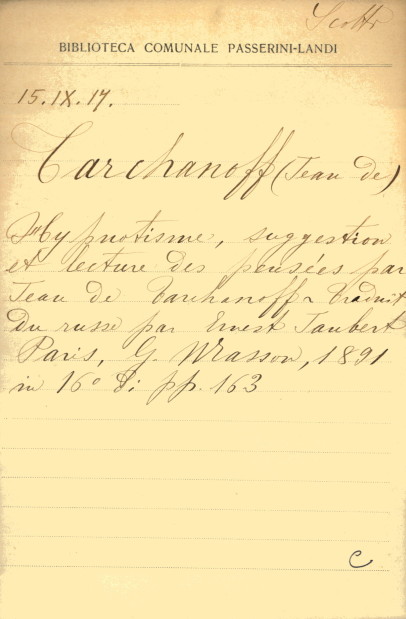 Scotti
BIBLIOTECA COMUNALE PASSERINI-LANDI
15.IX.17.
Tarchanoff (Jean de)
Hypnotisme, suggestion
et lecture des pensées par
Jean de Tarchanoff - Traduit
du russe par Ernest Jaubert
Paris, G. Masson, 1891
in 16° di pp. 163
C